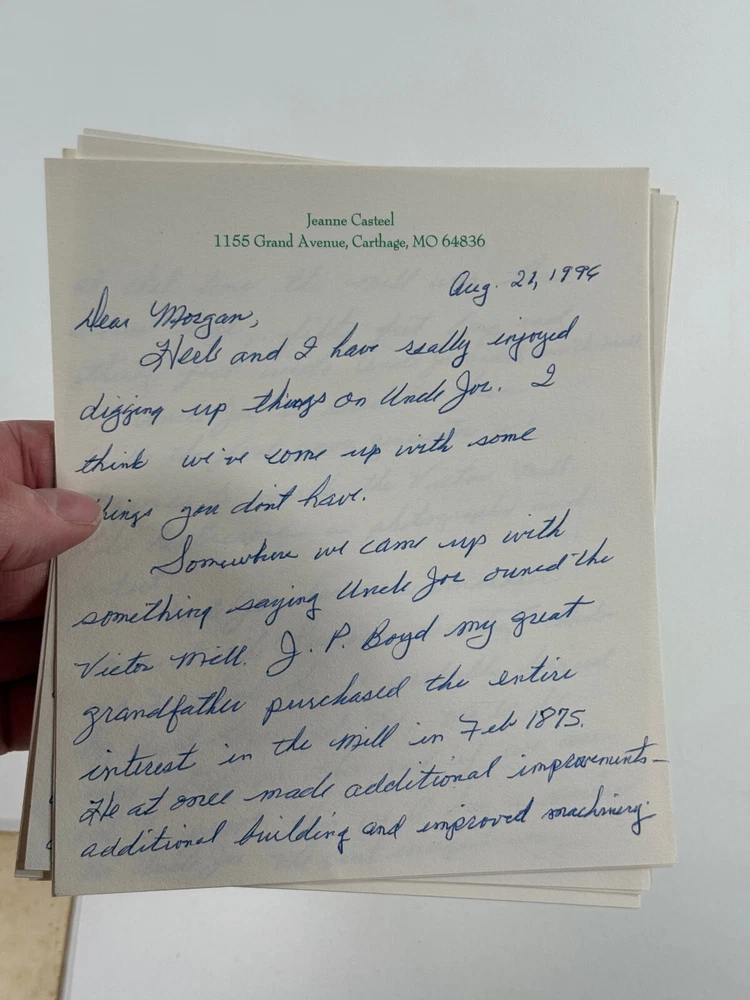 Jeanne Casteel
1155 Grand Avenue, Carthage, MO 64836
Aug. 1994
Dear Morgan,
Herb and I have really enjoyed
digging up things on Uncle Joe. I
think we've come up with some
things you don't have.
Somewhere we came up with
something saying Uncle Joe owned the
Victor Mill. J. P. Boyd my great
grandfather purchased the entire
interest in the Mill in Feb 1875.
He at once made additional improvements—
additional building and improved machinery.